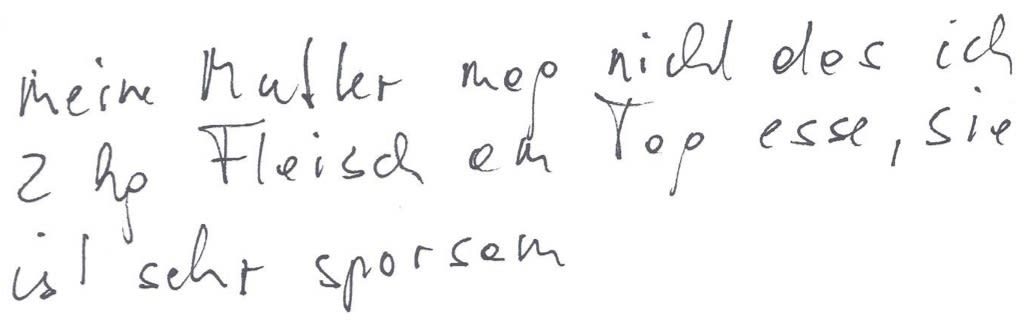 meine Mutter mag nicht das ich
2 kg Fleisch am Tag esse, sie
ist sehr sparsam